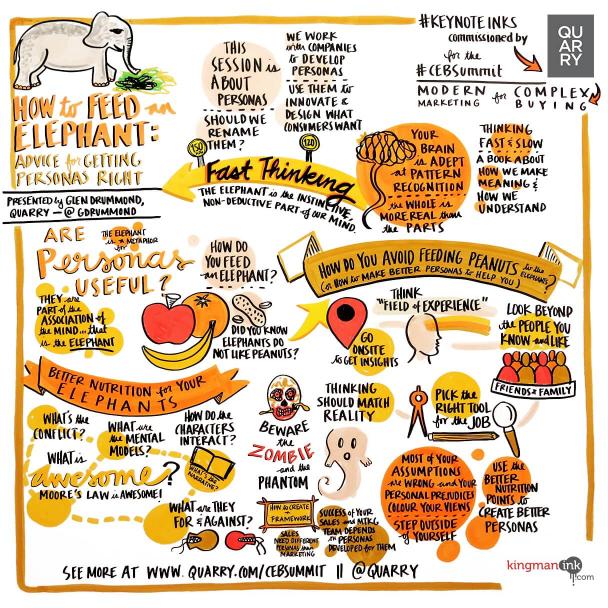 HOW to FEED an
ELEPHANT:
ADVICE for GETTING
PERSONAS RIGHT
PRESENTED by GLEN DRUMMOND,
QUARRY – @GDRUMMOND
THIS
SESSION is
ABOUT
PERSONAS
SHOULD WE
RENAME
THEM?
WE WORK
with COMPANIES
to DEVELOP
PERSONAS
USE THEM to
INNOVATE &
DESIGN WHAT
CONSUMERS WANT
#KEYNOTEINKS
commissioned by
for the
#CEBSummit
QU
AR
RY
MODERN for COMPLEX
MARKETING BUYING
120
Fast Thinking
THE ELEPHANT is the INSTINCTIVE,
NON-DEDUCTIVE PART of OUR MIND.
YOUR
BRAIN
is ADEPT
at PATTERN
RECOGNITION
the WHOLE is
MORE REAL than
the PARTS
THINKING
FAST & SLOW
A BOOK ABOUT
HOW WE MAKE
MEANING &
HOW WE
UNDERSTAND
ARE THE ELEPHANT is a METAPHOR for
Personas
USEFUL?
THEY are
PART of the
ASSOCIATION of
the MIND... that
is the ELEPHANT
HOW DO
YOU FEED
an ELEPHANT?
DID YOU KNOW
ELEPHANTS DO
NOT LIKE PEANUTS?
HOW DO YOU AVOID FEEDING PEANUTS to the ELEPHANT?
(or HOW to MAKE BETTER PERSONAS to HELP YOU)
GO
ONSITE
to GET INSIGHTS
THINK
"FIELD of EXPERIENCE"
LOOK BEYOND
the PEOPLE YOU
KNOW and LIKE
FRIENDS & FAMILY
BETTER NUTRITION for YOUR
ELEPHANTS
WHAT'S the
CONFLICT?
WHAT are
the MENTAL
MODELS?
HOW DO the
CHARACTERS
INTERACT?
WHAT is
awesome?
MOORE'S LAW is AWESOME!
WHAT'S the
NARRATIVE?
WHAT are THEY
FOR & AGAINST?
BEWARE
the
ZOMBIE
and the
PHANTOM
THINKING
SHOULD MATCH
REALITY
HOW to CREATE a
FRAMEWORK
SALES
NEED DIFFERENT
PERSONAS than
MARKETING
SUCCESS of YOUR
SALES and MKTG
TEAM DEPENDS
on PERSONAS
DEVELOPED for THEM
PICK the
RIGHT TOOL
for the JOB
MOST of YOUR
ASSUMPTIONS
are WRONG and YOUR
PERSONAL PREJUDICES
COLOUR YOUR VIEWS
STEP OUTSIDE
of YOURSELF
USE the
BETTER
NUTRITION
POINTS to
CREATE BETTER
PERSONAS
SEE MORE AT WWW.QUARRY.COM/CEBSUMMIT || @QUARRY
kingmanink
.com